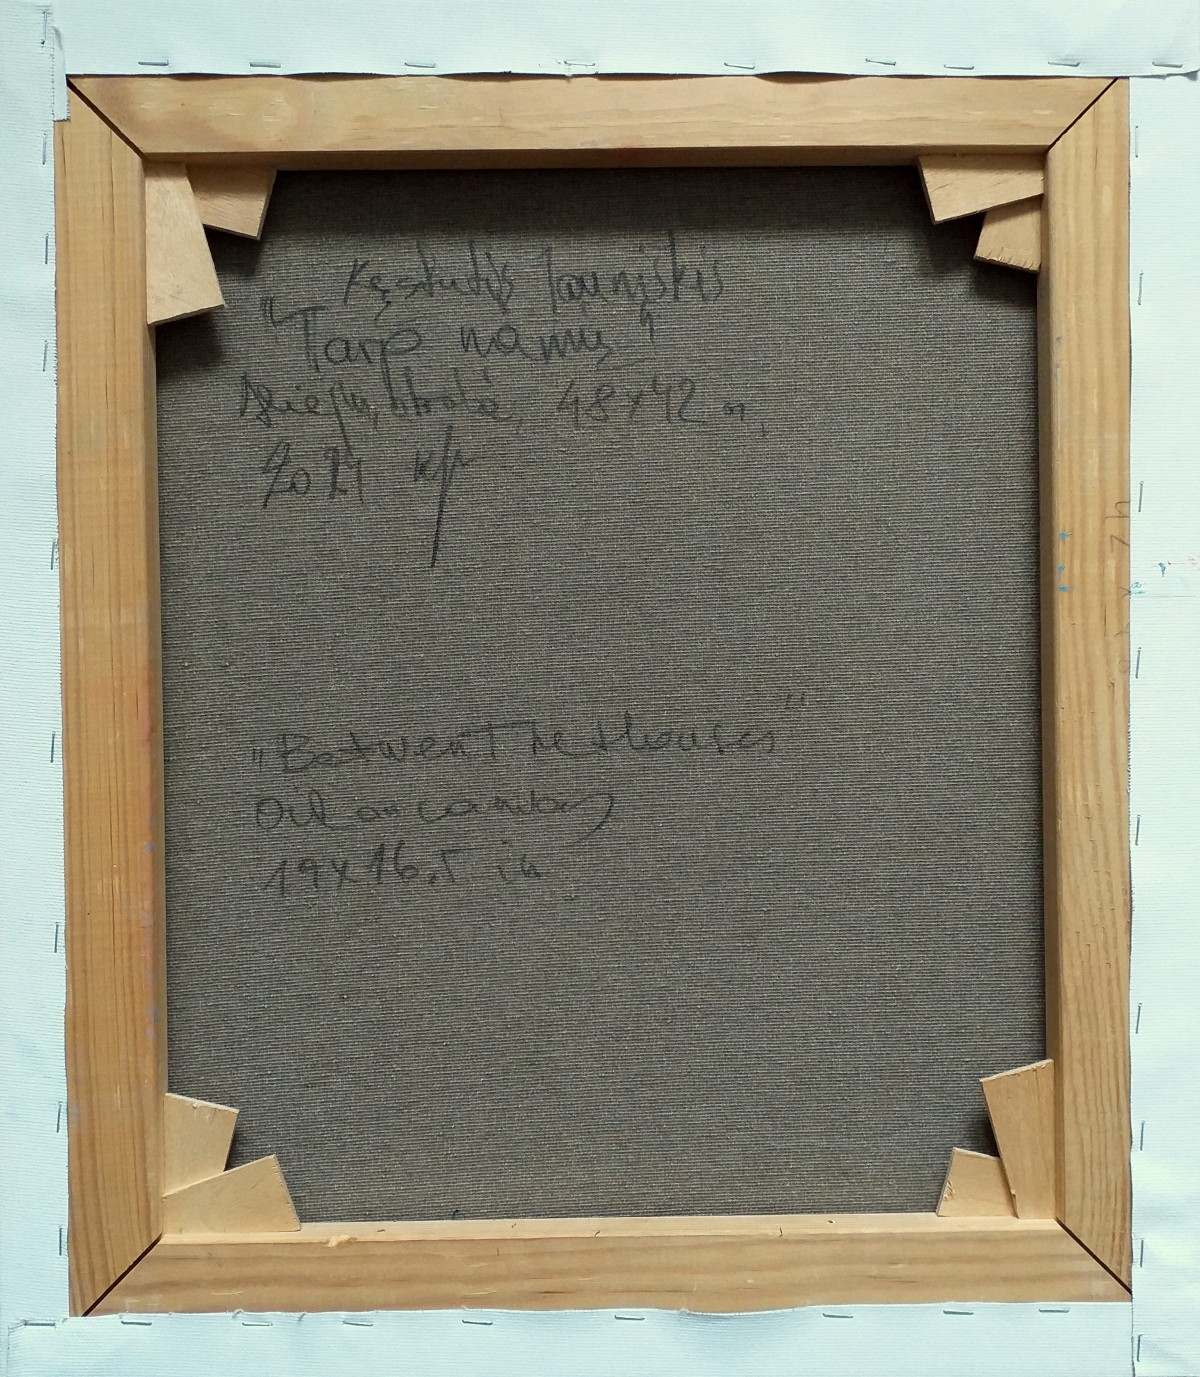 Kęstutis Jauniškis
„Tarp namų"
Aliejus, drobė, 48x42
2021
„Between The Houses"
Oil on canvas
19x16.5 in